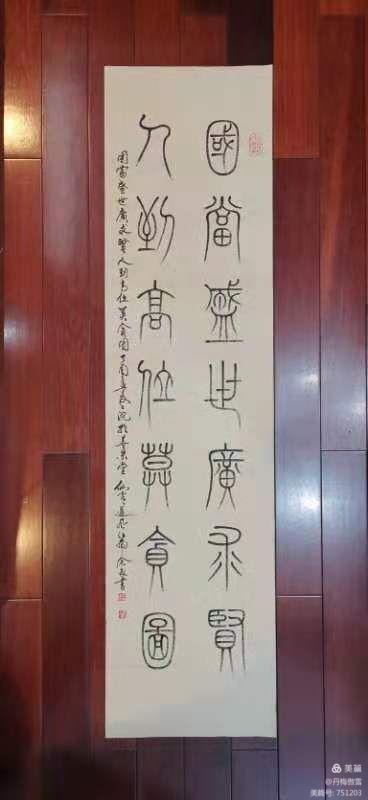 國當盛世廣求賢
人到高位莫貪圖
國當盛世廣求賢人到高位莫貪圖丁酉年
美篇
@丹梅傲雪
美篇号: 751203